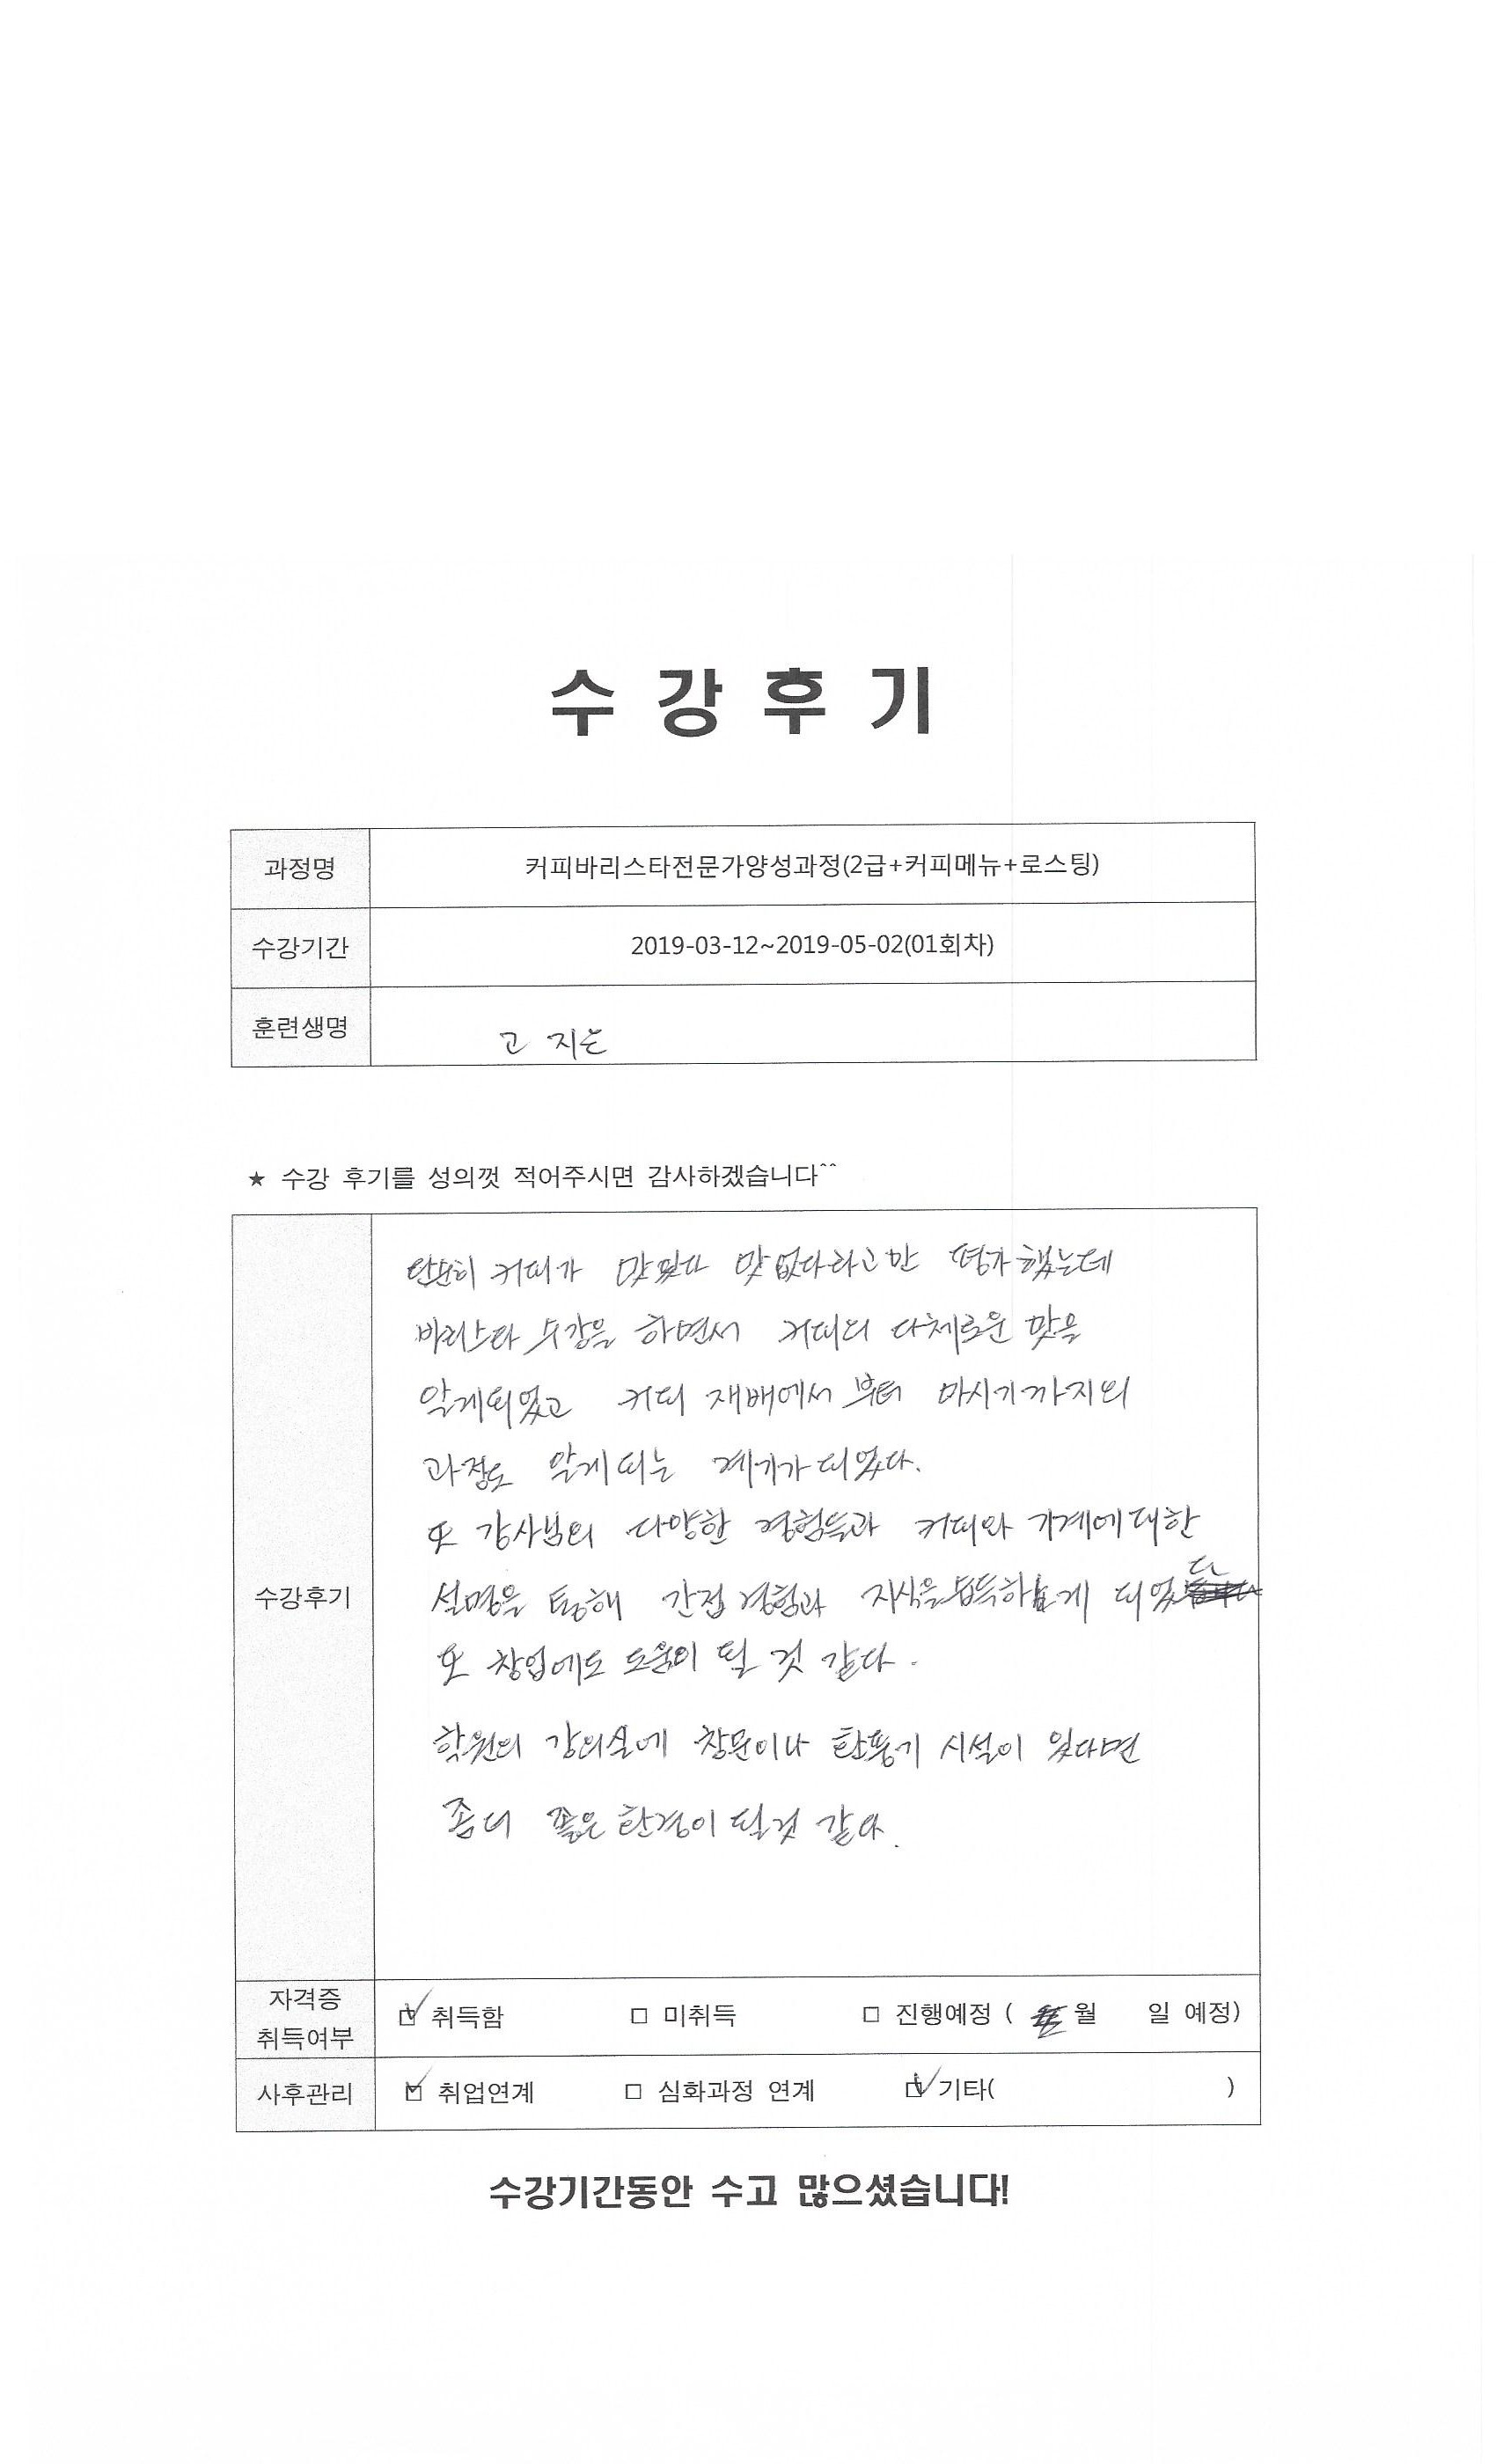 수 강 후 기
과정명 커피바리스타전문가양성과정(2급+커피메뉴+로스팅)
수강기간 2019-03-12~2019-05-02(01회차)
훈련생명 고 지은
★ 수강 후기를 성의껏 적어주시면 감사하겠습니다^^
단순히 커피가 맛있다 맛없다라고만 평가했는데
바리스타 수강을 하면서 커피의 다채로운 맛을
알게되었고 커피 재배에서 부터 마시기까지의
과정도 알게되는 계기가 되었다.
또 강사님의 다양한 경험들과 커피와 기계에대한
수강후기
설명을 통해 간접 경험과 지식을 습득하게 되었다
또 창업에도 도움이 될 것 같다.
학원의 강의실에 창문이나 환풍기 시설이 있다면
좀더 좋은 환경이 될것 같다.
자격증
취득여부
☑ 취득함 □ 미취득 □ 진행예정 ( 월 일 예정)
사후관리 ☑ 취업연계 □ 심화과정 연계 ☑ 기타( )
수강기간동안 수고 많으셨습니다!